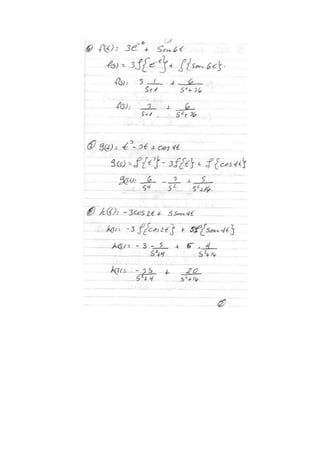 f(t): 3e^-t + Sen6t
f(s) = 3 ℒ{e^-t} + ℒ{sen6t}
f(s): 3 1/(s+1) + 6/(s²+36)
f(s): 3/(s+1) + 6/(s²+36)
g(t)= t³ - 3t + cos4t
g(s)= ℒ{t³} - 3ℒ{t} + ℒ{cos4t}
g(s): 6/s⁴ - 3/s² + s/(s²+16)
h(t): -3cos2t + 5sen4t
h(s)= -3 ℒ{cos2t} + 5ℒ{sen4t}
h(s)= -3 s/(s²+4) + 5 · 4/(s²+16)
h(s)= -3s/(s²+4) + 20/(s²+16)